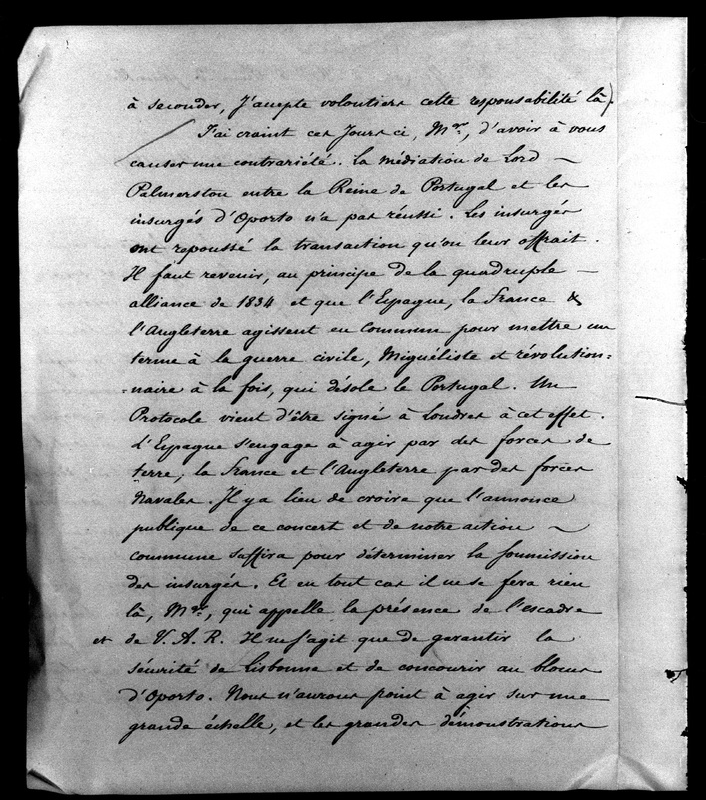 à seconder, J'accepte volontiers cette responsabilité là).
J'ai craint ces Jours ci, Mgr, d'avoir à vous
causer une contrariété.. La médiation de Lord ~
Palmerston entre la Reine de Portugal et les
insurgés d'Oporto n'a pas réussi. Les insurgés
ont repoussé la transaction qu'on leur offrait.
Il faut revenir, au principe de la quadruple —
alliance de 1834 et que l'Espagne, la France &
l'Angleterre agissent en Commun pour mettre un
terme à la guerre civile, Miguéliste et révolution=
=naire à la fois, qui désole le Portugal. Un
Protocole vient d'être signé à Londres à cet effet.
L'Espagne s'engage à agir par des forces de
terre, la France et l'Angleterre par des forces
Navales. Il y a lieu de croire que l'annonce
publique de ce concert et de notre action ~
commune suffira pour déterminer la soumission
des insurgés. Et en tout cas il ne se fera rien
là, Mgr, qui appelle la présence de l'escadre
et de V. A. R. Il ne s'agit que de garantir la
sécurité de Lisbonne et de concourir au blocus
d'Oporto. Nous n'aurons point à agir sur une
grande échelle, et les grandes démonstrations